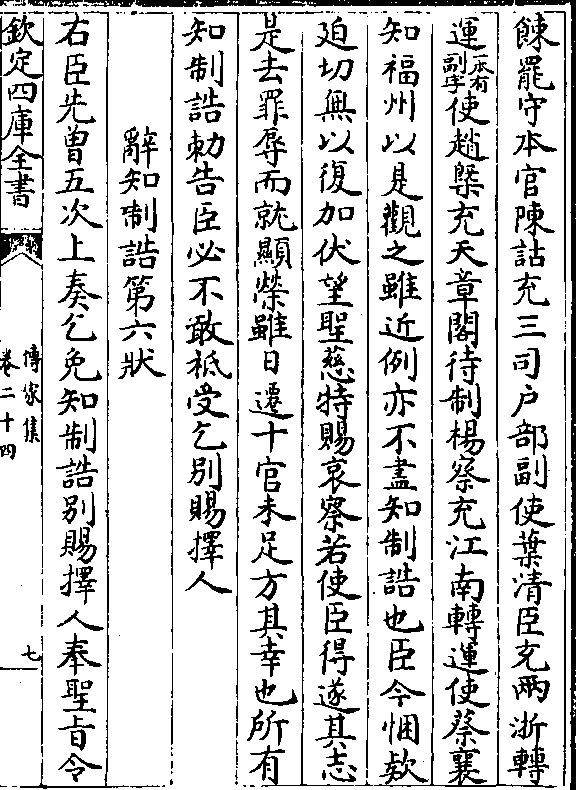 餗罷守本官陳詁充三司户部副使葉清臣充兩浙轉
運本有副字使趙槩充天章閣待制楊察充江南轉運使蔡襄
知福州以是觀之雖近例亦不盡知制誥也臣今悃欵
廹切無以復加伏望聖慈特賜哀察若使臣得遂其志
是去罪辱而就顯榮雖日遷十官未足方其幸也所有
知制誥勅告臣必不敢祇受乞别賜擇人
辭知制誥第六狀
右臣先曽五次上奏乞免知制誥别賜擇人奉聖旨令
欽定四庫全書
傳家集
卷二十四
七